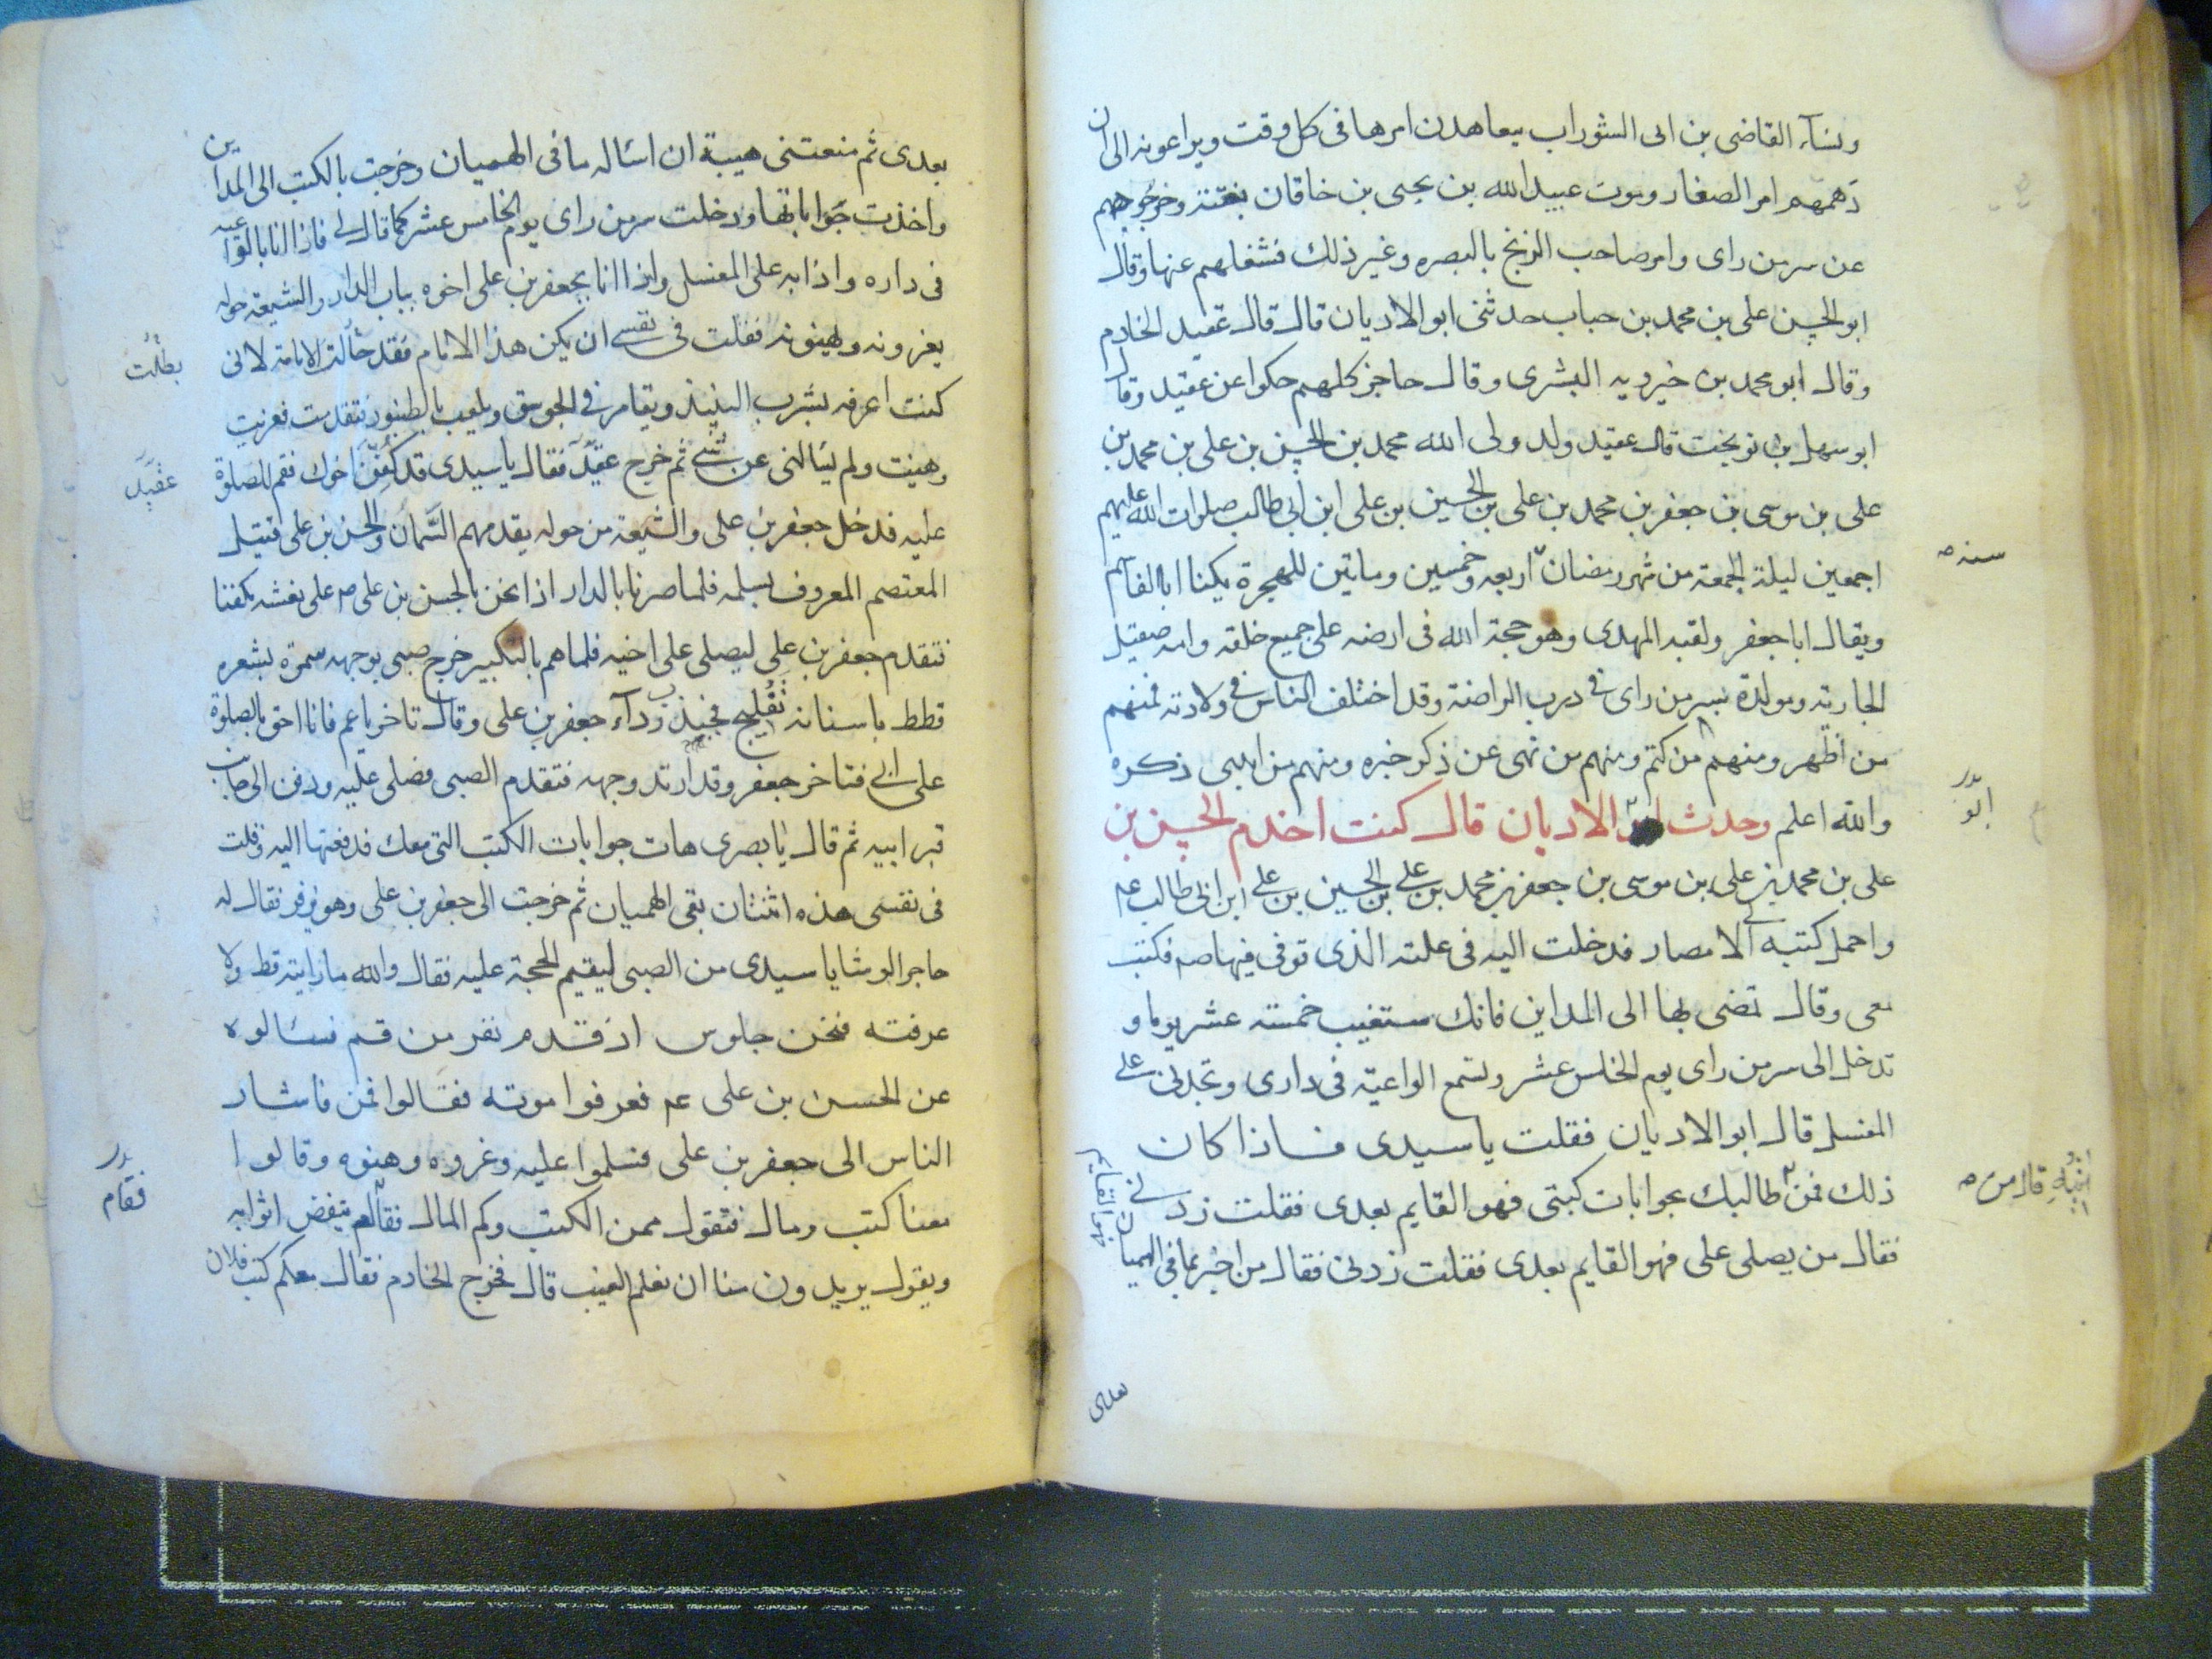 ونساء القاضى بن ابى الشوراب يتعاهدن امرها فى كل وقت ويراعونه الى ان
دَهمهم امر الصغار وموت عبيد الله بن يحيى بن خاقان بغتتة وخروجهم
عن سرمن راى وامر صاحب الزنج بالبصره وغير ذلك فشغلهم عنها وقال
ابو الحسن على بن محمد بن حباب حدثنى ابو الاديان قال قال عقيد الخادم
وقال ابو محمد بن خيرويه البشرى وقال حاجز كلهم حكوا عن عقيد وقال
ابو سهل بن نوبخت قال عقيد ولد ولى الله محمد بن الحسن بن على بن محمد بن
على بن موسى بن جعفر بن محمد بن على بن الحسين بن على ابن ابى طالب صلوات الله عليهم
اجمعين ليلة الجمعة من شهر رمضان اربعه وخمسين وماتين للهجرة يكنا ابا القاسم
سنه
ويقال ابا جعفر ولقبه المهدى وهو حجة الله فى ارضه على جميع خلقه وامه صقيل
الجاريه ومولده بسر من راى فى درب الراضة وقد اختلف الناس فى ولادته فمنهم
من اظهر ومنهم من كتم ومنهم من نهى عن ذكر خبره ومنهم من ابدى ذكره
والله اعلم وحدث الاديان قال كنت اخدم الحسن بن
ابو
بدر
على بن محمد بن على بن موسى بن جعفر بن محمد بن على بن الحسين بن على ابن ابى طالب عم
واحمل كتبه الى الامصار فدخلت اليه فى علته الذى توفى فيها صه فكتب
معى وقال تمضى بها الى المداين فانك ستغيب خمسته عشر يوما و
تدخل الى سرمن راى يوم الخامس عشر وتسمع الواعية فى دارى وتجدنى على
المغسل قال ابو الاديان فقلت يا سيدى فاذا كان
ذلك فمن طالبك بجوابات كتبى فهو القايم بعدى فقلت زدنى
قال من
فقال من يصلى على فهو القايم بعدى فقلت زدنى فقال من اخبر بما فى الهميان
فهو القايم
بعدى
بعدى ثم منعتنى هيبة ان اساله ما فى الهميان وخرجت بالكتب الى المداين
واخذت جواباتها ودخلت سرمن راى يوم الخامس عشر كما قال لى فاذا انا بالواعيه
فى داره واذا به على المغسل واذا انا بجعفر بن على اخوه بباب الدار والشيعة حوله
يعزونه ويهنونه فقلت فى نفسى ان يكن هذا الامام فقد حالت الامامة لانى
بطلت
كنت اعرفه بشرب النبيذ ويقامر فى الجوسق ويلعب بالطنبور فتقدمت فعزيت
وهنيت ولم يسالنى عن شى ثم خرج عقيد فقال يا سيدى قد كفن اخوك فقم للصلوة
عقيد
عليه فدخل جعفر بن على والشيعة من حوله يقدمهم السمان والحسن بن على قتيل
المعتصم المعروف بسلمه فلما صرنا بالدار اذا نحن بالحسن بن على صه على نعشه مكفنا
فتقدم جعفر بن على ليصلى على اخيه فلما هم بالتكبير خرج صبى بوجهه سمرة بشعره
قطط باسنانه تفليج فجبذ رداء جعفر بن على وقال تاخر يا عم فانا احق بالصلوة
على ابى فتاخر جعفر وقد ارتد وجهه فتقدم الصبى فصلى عليه ودفن الى جانب
قبر ابيه ثم قال يا بصرى هات جوابات الكتب التى معك فدفعتها اليه وقلت
فى نفسى هذه اثنتان بقى الهميان ثم خرجت الى جعفر بن على وهو يزفر فقال له
حاجز الوشا يا سيدى من الصبى ليقيم الحجة عليه فقال والله ما رايته قط ولا
عرفته فنحن جلوس اذ قدم نفر من قم فسالوه
عن الحسن بن على عم فعرفوا موته فقالوا فمن فاشار
الناس الى جعفر بن على فسلموا عليه وعزوه وهنوه وقالوا
معنا كتب ومال فتقول ممن الكتب وكم المال ينفض اثوابه
فقام
بدر
ويقول يريدون منا ان نعلم الغيب قال فخرج الخادم فقال معكم كتب فلان